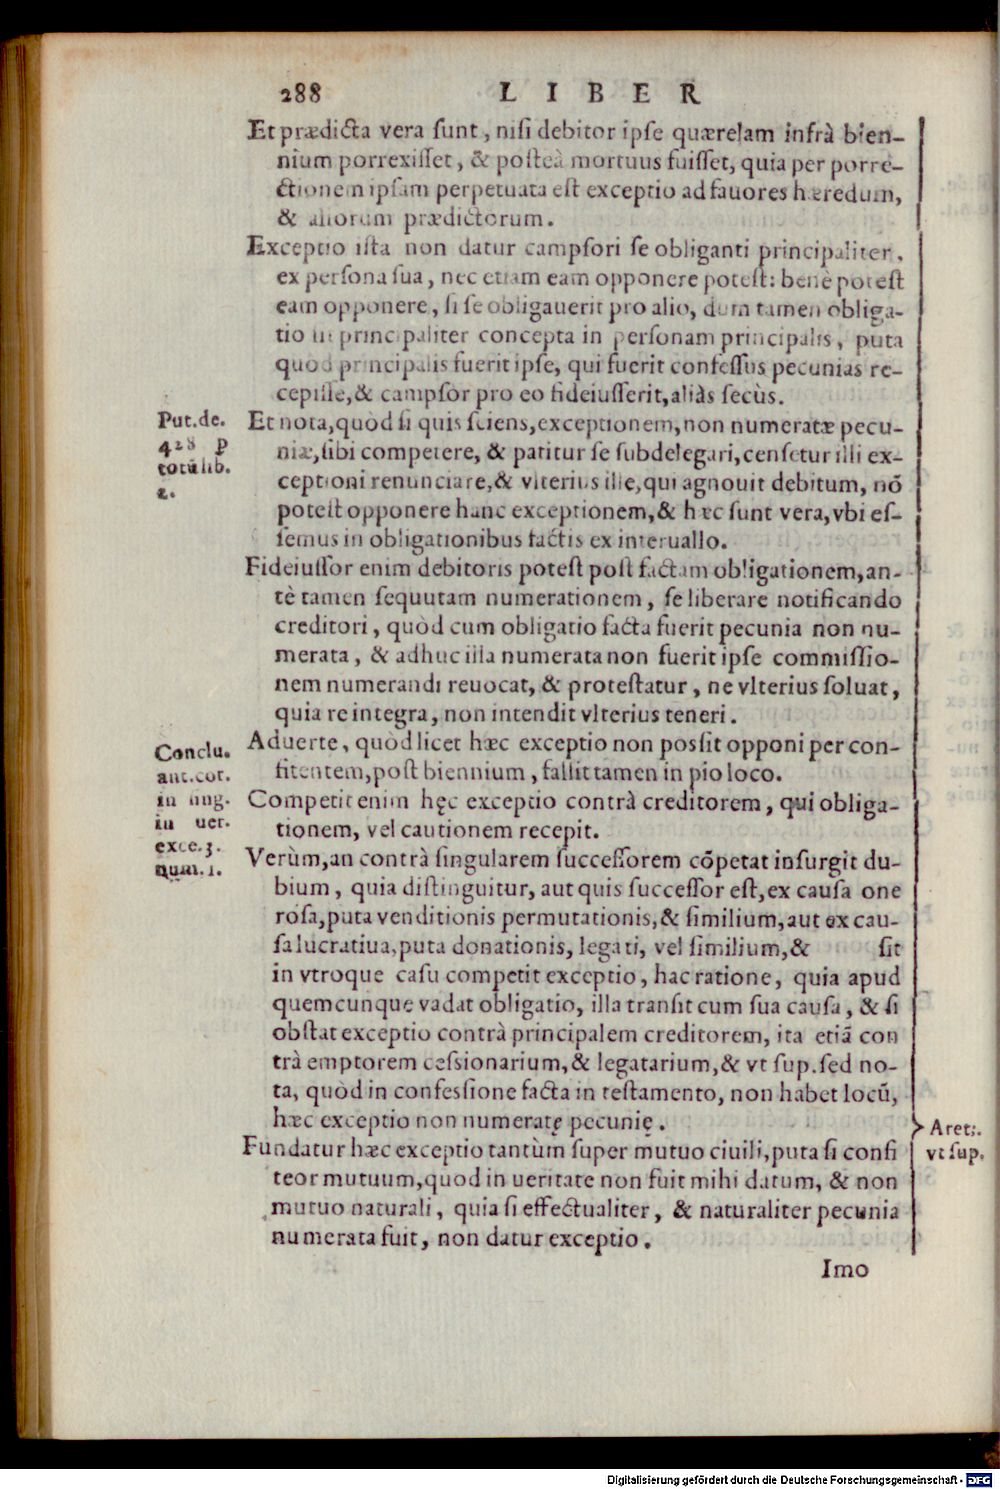 288 LIBER
Et prædicta vera sunt, nisi debitor ipse quærelam infrà bien-
nium porrexisset, & posteà mortuus fuisset, quia per porre-
ctionem ipsam perpetuata est exceptio ad fauores hæredum,
& aliorum prædictorum.
Exceptio ista non datur campsori se obliganti principaliter,
ex persona sua, nec etiam eam opponere potest: benè potest
eam opponere, si se obligauerit pro alio, dum tamen obliga-
tio sit principaliter concepta in personam principalis, puta
quod principalis fuerit ipse, qui fuerit confessus pecunias re-
cepisse, & campsor pro eo fideiusserit, aliàs secùs.
Put. de.
428 p
totũ lib.
2.
Et nota, quòd si quis sciens, exceptionem, non numeratæ pecu-
niæ, sibi competere, & patitur se subdelegari, censetur illi ex-
ceptioni renunciare, & vlterius ille, qui agnouit debitum, nõ
potest opponere hanc exceptionem, & hæc sunt vera, vbi es-
semus in obligationibus factis ex interuallo.
Fideiussor enim debitoris potest post factam obligationem, an-
tè tamen sequutam numerationem, se liberare notificando
creditori, quòd cum obligatio facta fuerit pecunia non nu-
merata, & adhuc illa numerata non fuerit ipse commissio-
nem numerandi reuocat, & protestatur, ne vlterius soluat,
quia re integra, non intendit vlterius teneri.
Conclu.
ant. cor.
in
in uer.
exce. 3.
num. 1.
Aduerte, quòd licet hæc exceptio non possit opponi per con-
fitentem, post biennium, fallit tamen in pio loco.
Competit enim hęc exceptio contrà creditorem, qui obliga-
tionem, vel cautionem recepit.
Verùm, an contrà singularem successorem cõpetat insurgit du-
bium, quia distinguitur, aut quis successor est, ex causa one
rosa, puta venditionis permutationis, & similium, aut ex cau-
sa lucratiua, puta donationis, legati, vel similium, & sit
in vtroque casu competit exceptio, hac ratione, quia apud
quemcunque vadat obligatio, illa transit cum sua causa, & si
obstat exceptio contrà principalem creditorem, ita etiã con
trà emptorem cessionarium, & legatarium, & vt sup. sed no-
ta, quòd in confessione facta in testamento, non habet locũ,
hæc exceptio non numeratę pecunię.
Aret.
vt sup.
Fundatur hæc exceptio tantùm super mutuo ciuili, puta si confi
teor mutuum, quod in ueritate non fuit mihi datum, & non
mutuo naturali, quia si effectualiter, & naturaliter pecunia
numerata fuit, non datur exceptio.
Imo
Digitalisierung gefördert durch die Deutsche Forschungsgemeinschaft - DFG